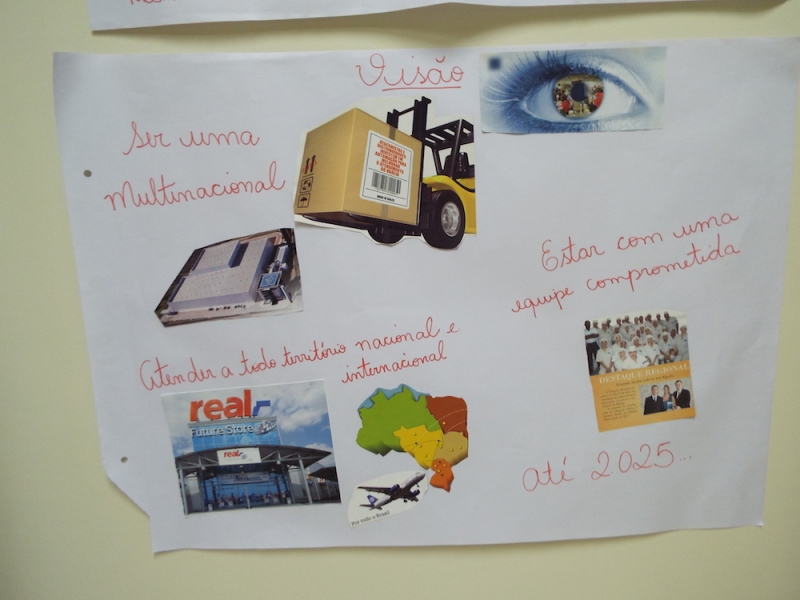 Visão
Ser uma
Multinacional
Estar com uma
equipe comprometida
Atender a todo território nacional e
internacional
real
Future Store
real
DESTAQUE REGIONAL
Por todo o Brasil
até 2025...